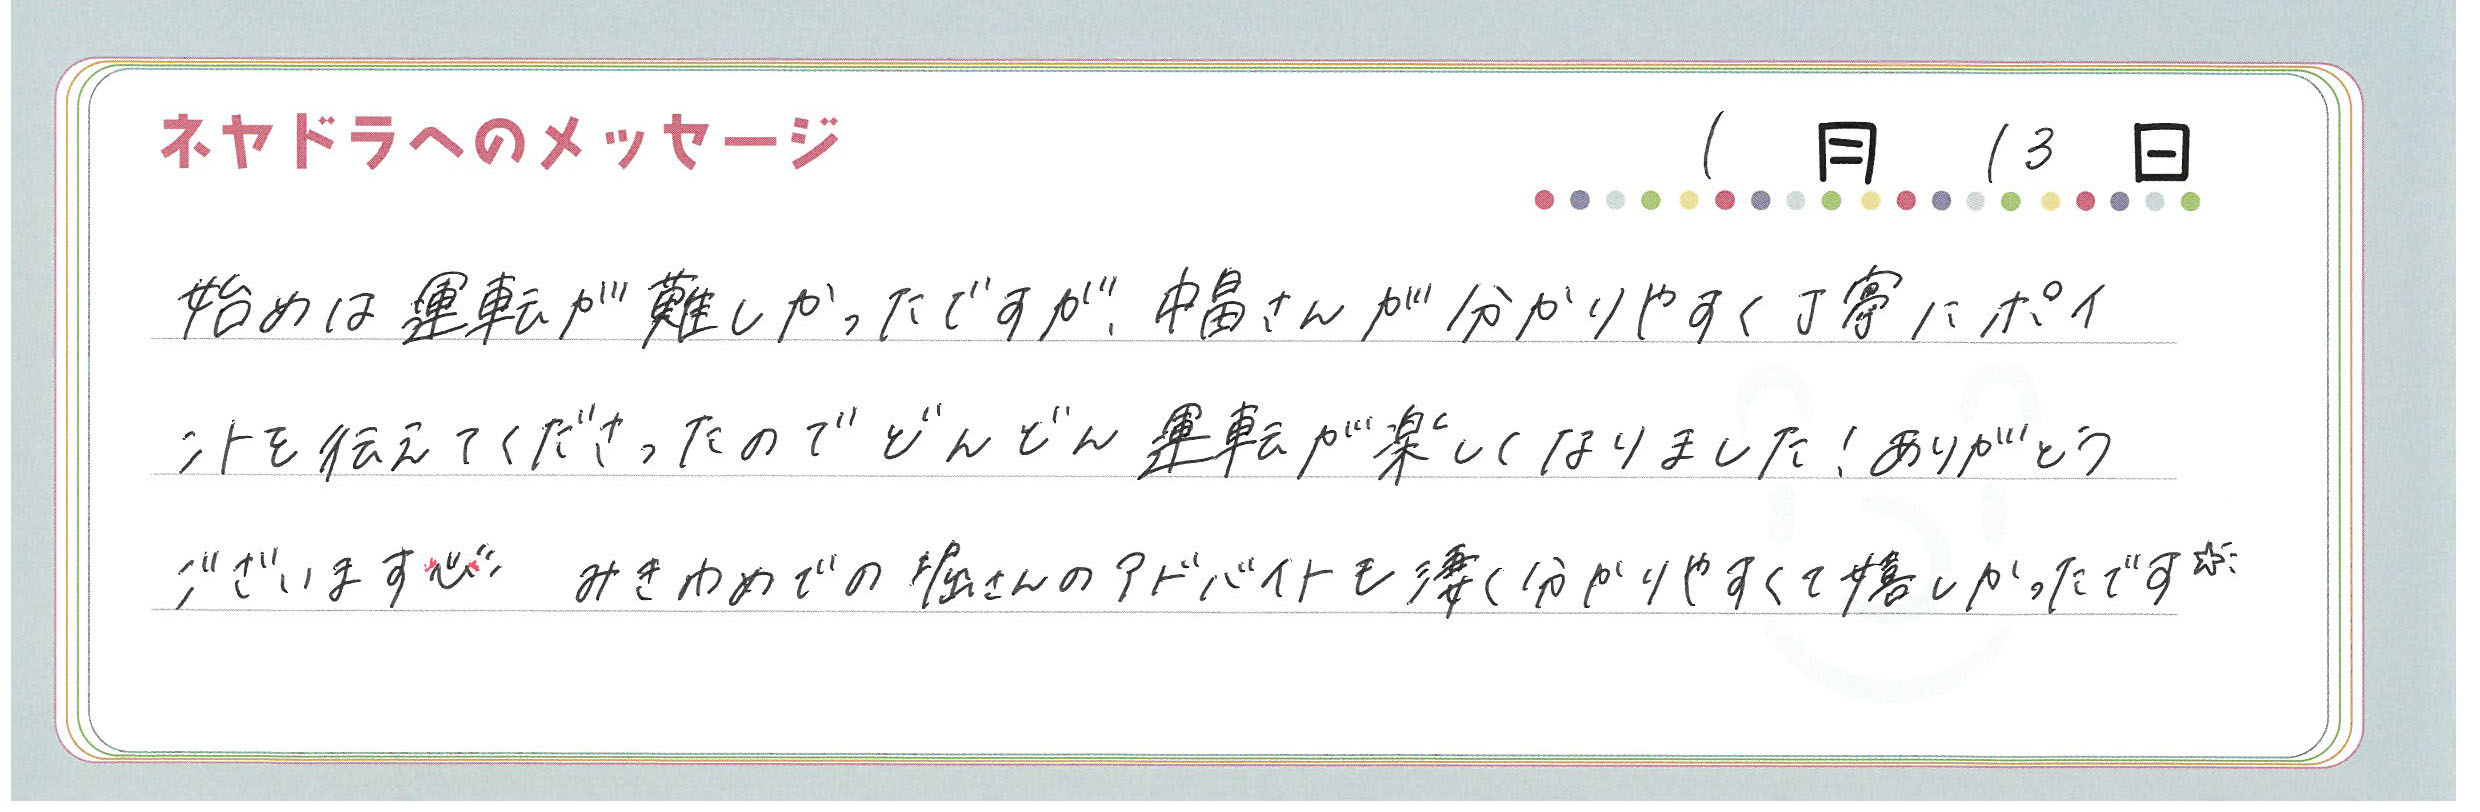 ネヤドラへのメッセージ
1月13日
始めは運転が難しかったですが、中畠さんが分かりやすく丁寧にポイ
ントを伝えてくださったのでどんどん運転が楽しくなりました！ありがとう
ございます みきわめでの堀さんのアドバイトも凄く分かりやすくて嬉しかったです☆